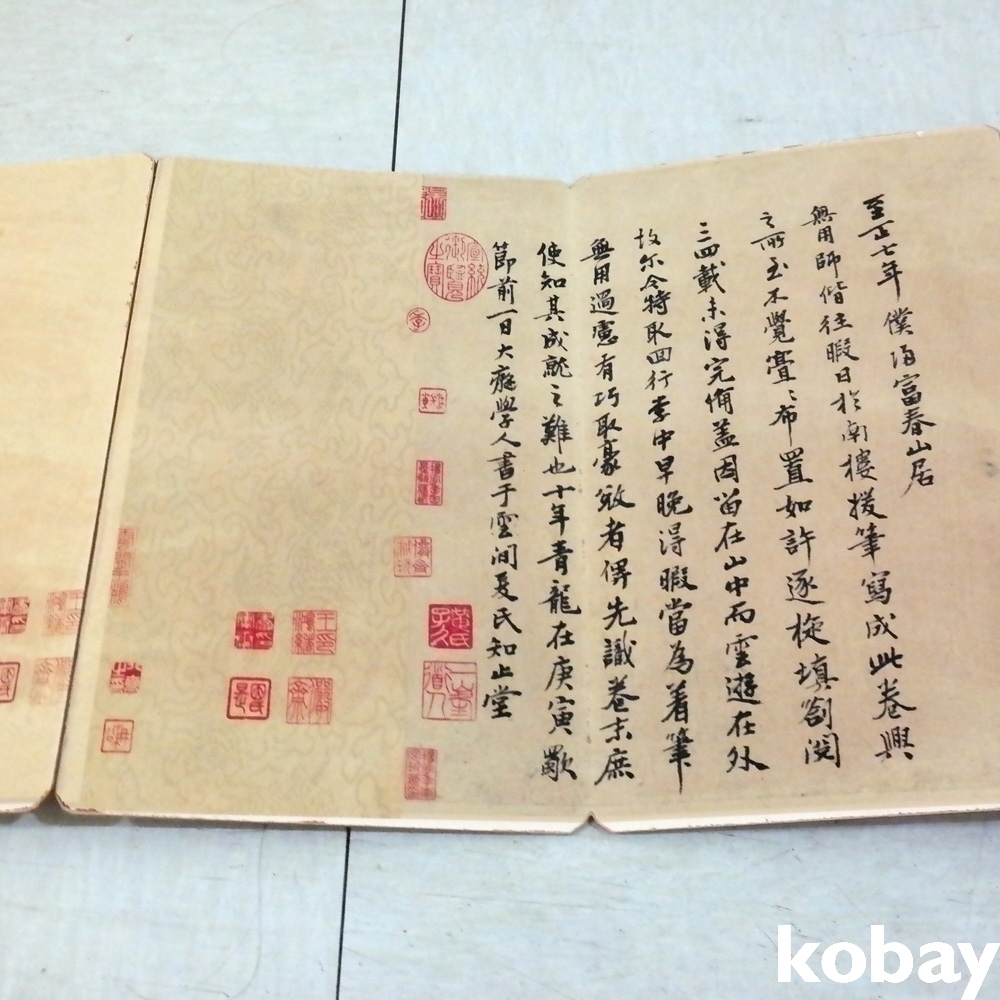 至正七年僕歸富春山居
無用師偕往暇日於南樓援筆寫成此卷興
之所至不覺亹亹布置如許逐旋填劄閱
三四載未得完備蓋因留在山中而雲遊在外
故尔今特取回行李中早晚得暇當為着筆
無用過慮有巧取豪敓者俾先識卷末庶
使知其成就之難也十年青龍在庚寅歜
節前一日大癡學人書于雲間夏氏知止堂
宣統御覽之寶
kobay